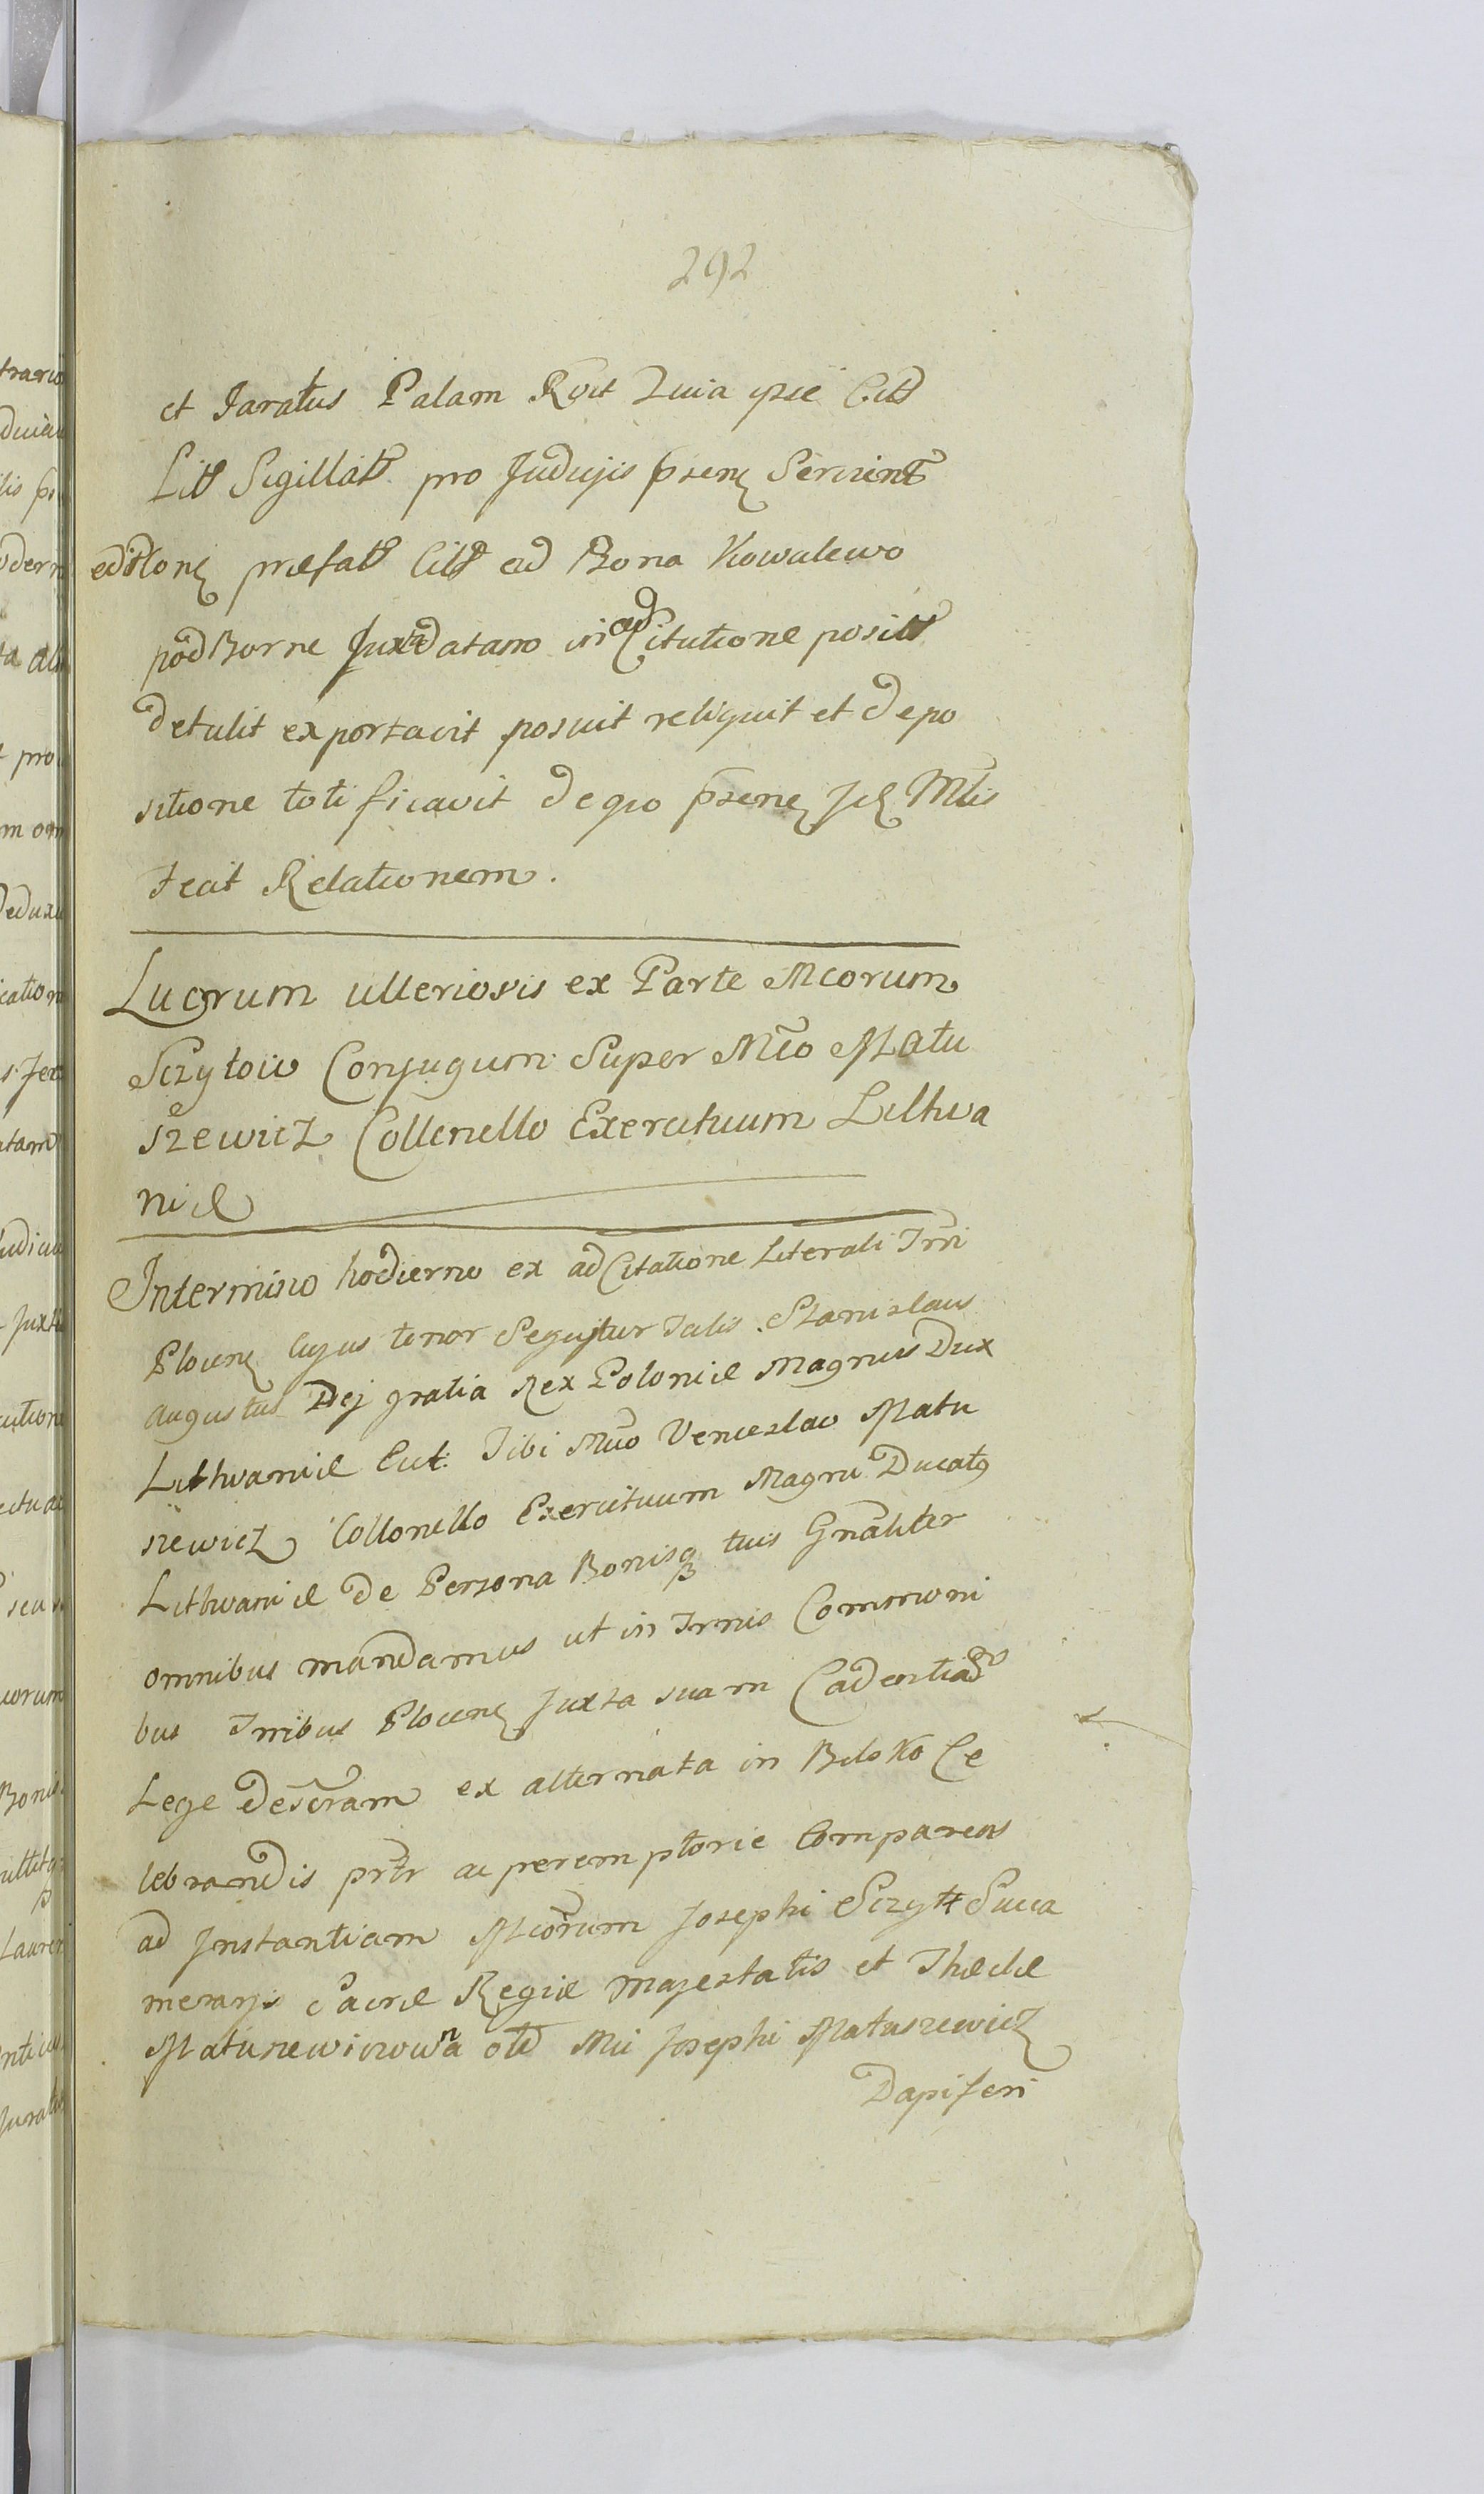 292
et Juratus Palam Rcit Quia ipse Citt
Litt Sigillatt pro Judicijs prsenę Servient
editionę præfatt Citt ad Bona Kowalewo
podBorne Juxta datam in adCitatione positt
detulit exportavit posuit reliquit et depo
sitione totificavit de quo prsenę Jdę Mtis
fecit Relationem.
Lucrum ulteriosis ex Parte Mcorum
Sczytow Conjugum Super Mco Matu
szewicz Collonello Exercituum Lithva
niæ
Intermino hodierno ex adCitatione Literali Trri
Plocenę Cujus tenor Sequitur Talis Stanislaus
Augustus Dej gratia Rex Poloniæ Magnus Dux
Lithvaniæ Ect. Tibi Mco Venceslao Matu
szewicz Collonello Exercituum Magni Ducatq
Lithvaniæ de Persona Bonisq tuis Gnaliter
omnibus mandamus ut in Trmis Communi
bus Trribus Plocenę Juxta suam Cadentiam
Lege descram ex alternata in Bilsko Ce
lebrandis prtr ac peremptorie Compareas
ad Jnstantiam Mcorum Josephi Sczytt Succa
merarij Sacræ Regiæ Majestatis et Theclæ
Matuszewiczowna olt Mci Josephi Matuszewicz
Dapiferi